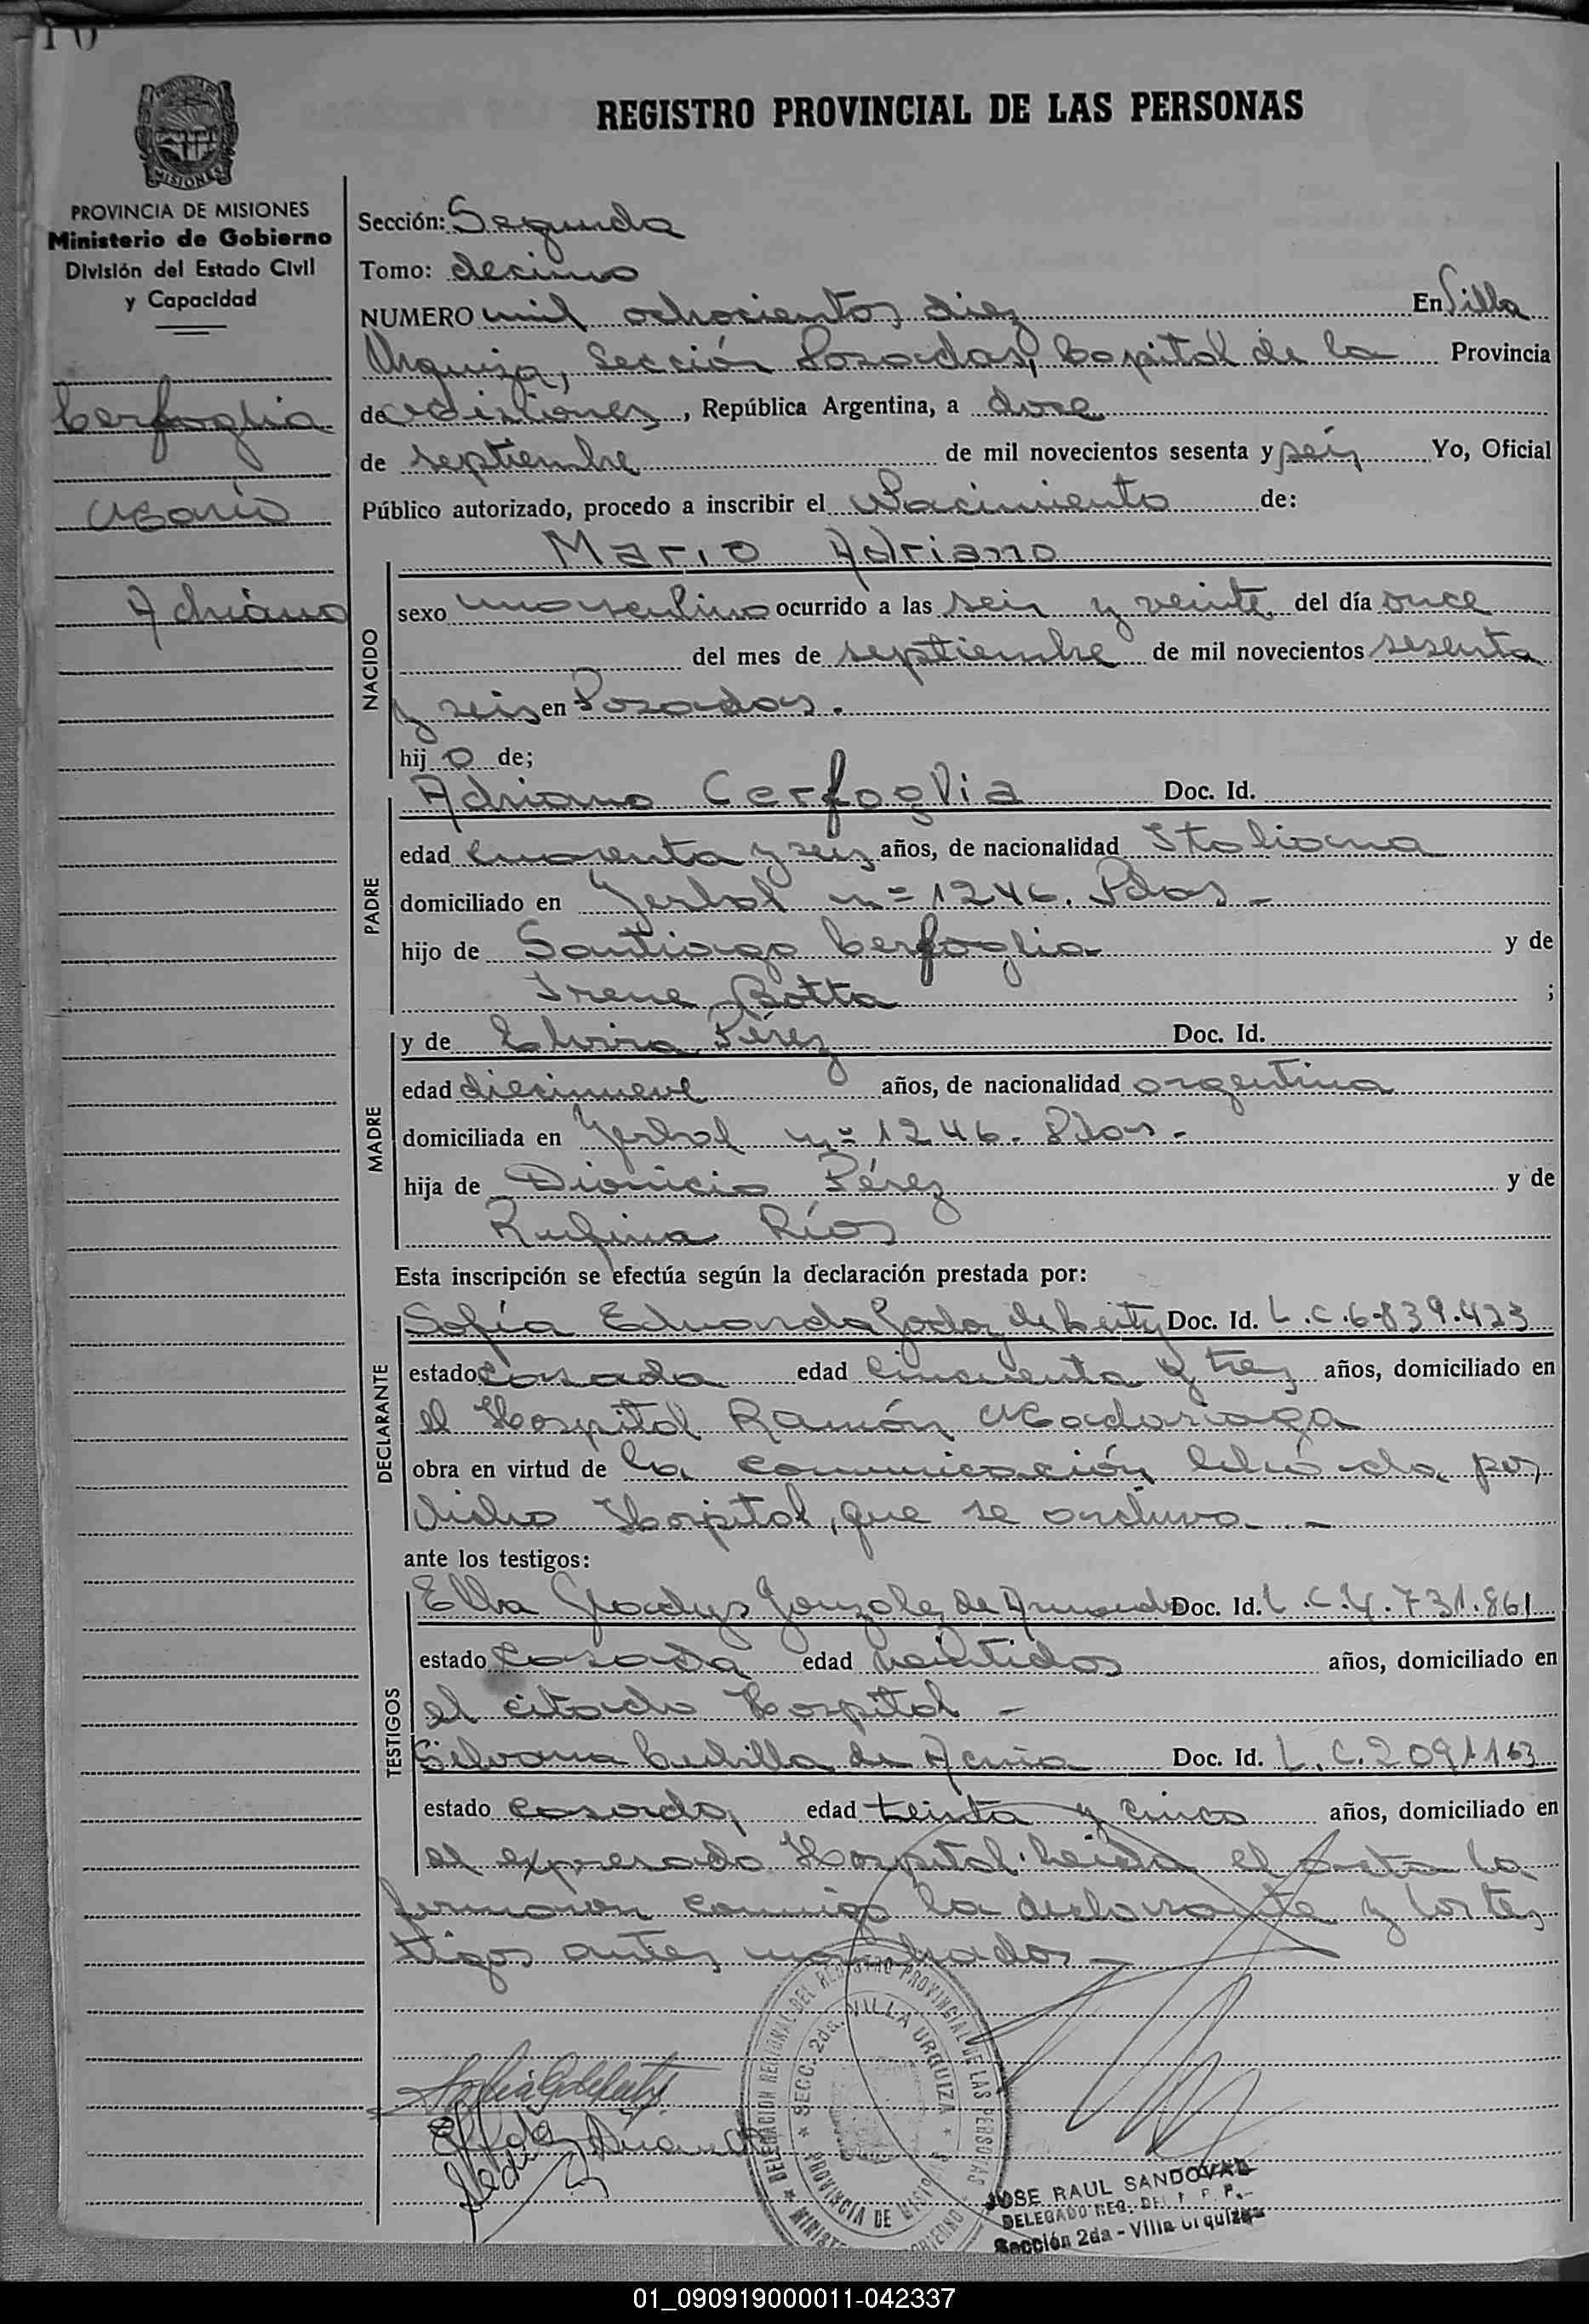 10
REGISTRO PROVINCIAL DE LAS PERSONAS
MISIONES
PROVINCIA DE MISIONES
Ministerio de Gobierno
División del Estado Civil
y Capacidad
Cerfoglia
Mario
Adriano
Sección: Segunda
Tomo: decimo
NUMERO mil ochocientos diez En Villa
Urquiza, Sección Posadas, Capital de la Provincia
de Misiones, República Argentina, a doce
de septiembre de mil novecientos sesenta y seis Yo, Oficial
Público autorizado, procedo a inscribir el Nacimiento de:
Mario Adriano
NACIDO
sexo masculino ocurrido a las seis y veinte del día once
del mes de septiembre de mil novecientos sesenta
y seis en Posadas.
hij o de;
PADRE
Adriano Cerfoglia Doc. Id.
edad cuarenta y seis años, de nacionalidad Italiana
domiciliado en Yerbal nº 1246. Pdas -
hijo de Santiago Cerfoglia y de
Irene Botta ;
MADRE
y de Elvira Pérez Doc. Id.
edad diecinueve años, de nacionalidad argentina
domiciliada en Yerbal nº 1246. Pdas -
hija de Dionicio Pérez y de
Rufina Ríos
Esta inscripción se efectúa según la declaración prestada por:
DECLARANTE
Sofía Eduarda Godoy de Doc. Id. L.C.6.839.423
estado casada edad cincuenta y tres años, domiciliado en
el Hospital Ramón Madariaga
obra en virtud de la comunicación librada por
dicho Hospital, que se archiva -
ante los testigos:
TESTIGOS
Elba Gladys Gonzalez de Doc. Id. L.C.4.731.861
estado casada edad veintidos años, domiciliado en
el citado Hospital -
Silvana de Doc. Id. L.C.2091163
estado casada, edad treinta y cinco años, domiciliado en
el expresado Hospital. Leida el acta la
firmaron conmigo la declarante y los tes
tigos antes nombrados -
DELEGACION REGIONAL DEL REGISTRO PROVINCIAL DE LAS PERSONAS
SECC. 2da. VILLA URQUIZA
PROVINCIA DE
JOSE RAUL SANDOVAL
DELEGADO REG. DEL R. P. P.
Sección 2da - Villa Urquiza
01_090919000011-042337